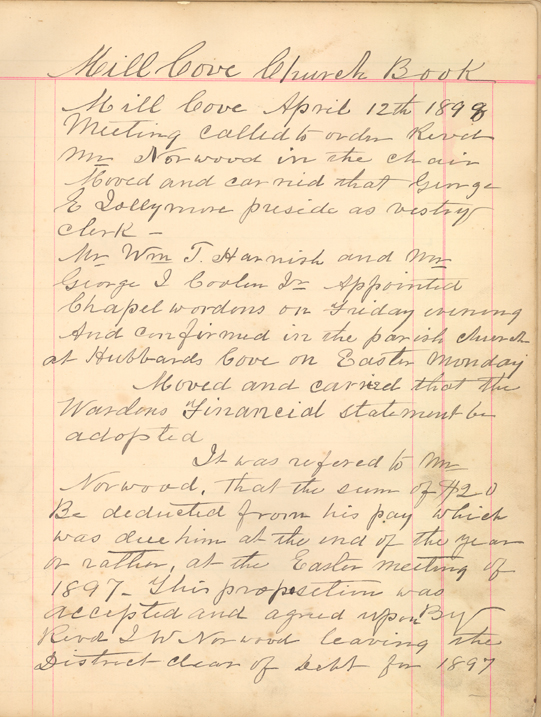 Mill Cove Church Book
Mill Cove April 12th 1898
Meeting called to order Revd
Mr Norwood in the chair
Moved and carried that George
E Dollymore preside as vestry
clerk -
Mr Wm T. Harnish and Mr
George I Coolen Jr Appointed
Chapel wordons on Friday evening
And confirmed in the parish church
at Hubbards Cove on Easter Monday
Moved and carried that the
Wardens Financial statement be
adopted
It was refered to Mr
Norwood, that the sum of $20
Be deducted from his pay which
was due him at the end of the year
or rather, at the Easter meeting of
1897 - This proposition was
accepted and agreed upon By
Revd I W Norwood leaving the
District clear of debt for 1897